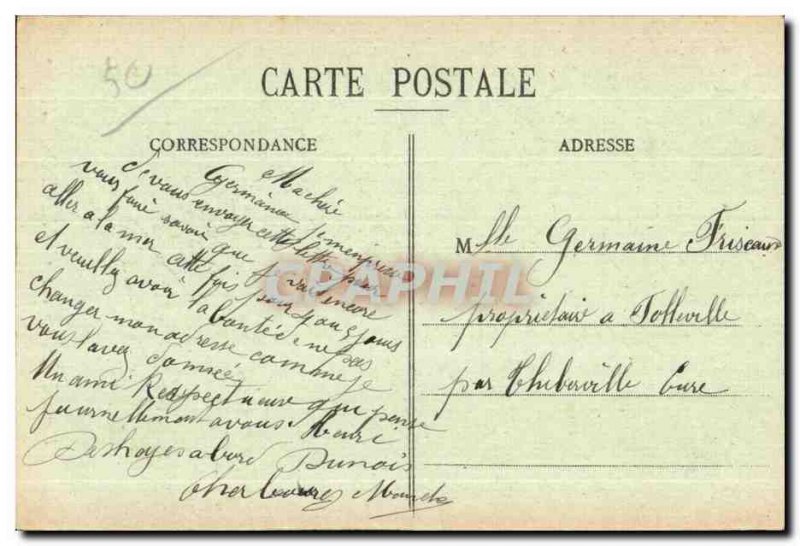 50
CARTE POSTALE
CORRESPONDANCE
ADRESSE
Machère
Germaine j'mempresse
de vous envoyer cette lettre pour
vous faire savoir que j vait encore
aller a la mer cette fois pour 4 ou 5 jours
et veuillez avoir la bonté de ne pas
changer mon adresse comme je
vous lavez donnée
Un ami Respectueux qui pense
journellement a vous Henri
Deshayes a bord Dunois
Cherbourg Manche
Mlle Germaine
propriétaire a Folleville
par Thiberville Eure
CARAPHIL